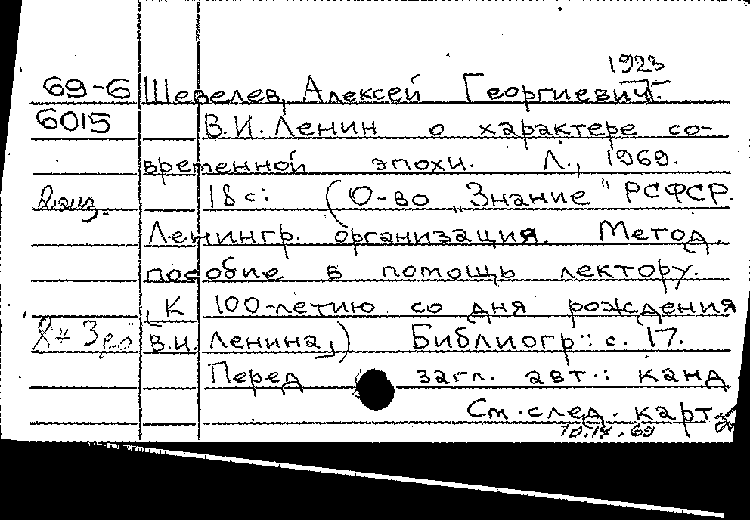 1923
69-6 Шевелев, Алексей Георгиевич.
6015 В.И. Ленин о характере со-
временной эпохи. Л., 1969.
2 экз. 18 с. (О-во "Знание" РСФСР.
Ленингр. организация. Метод.
пособие в помощь лектору.
К 100-летию со дня рождения
В.И. Ленина.) Библиогр.: с. 17.
Перед загл. авт.: канд
См. след. карт.